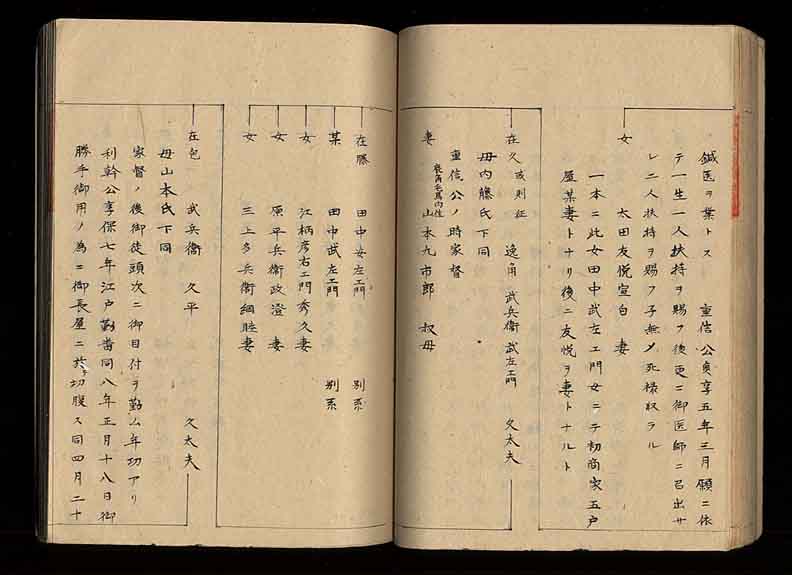 鍼医ヲ業トス 重信公貞享五年三月願ニ依
テ一生一人扶持ヲ賜フ後更ニ御医師ニ召出サ
レ二人扶持ヲ賜フ子無〆死禄収ラル
女 太田友悦宣白 妻
一本ニ此女田中武左エ門女ニテ初商家五戸
屋某妻トナリ後ニ友悦ヲ妻トナルト
在久 或則征 逸角 武兵衛 武左エ門 久太夫
母内藤氏下同
重信公ノ時家督
妻 山本九市郎 叔母
在勝 田中女左エ門 別系
某 田中武左エ門 別系
女 江柄彦右エ門秀久妻
女 原平兵衛政澄 妻
女 三上多兵衛綱 妻
在包 武兵衛 久平 久太夫
母山本氏下同
家督ノ後御徒頭次ニ御目付ヲ勤ム年功アリ
利幹公享保七年江戸勤番同八年正月十八日御
勝手御用ノ為ニ御長屋ニ於切腹ス同四月二十